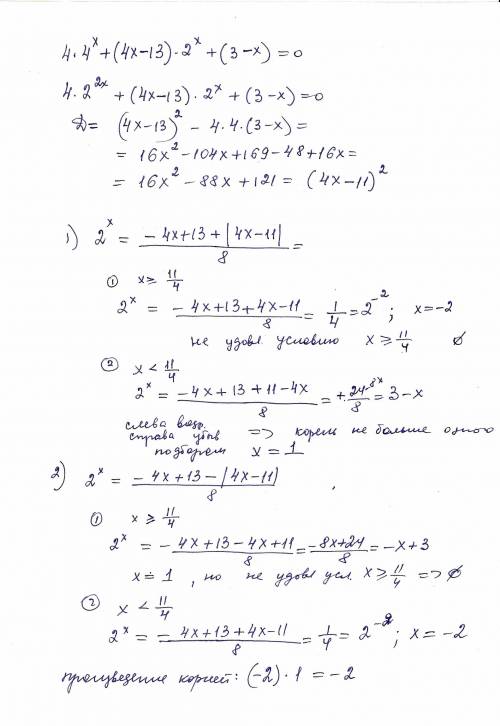 4·4^x + (4x-13)·2^x + (3-x) = 0
4·2^{2x} + (4x-13)·2^x + (3-x) = 0
D = (4x-13)^2 - 4·4·(3-x) =
= 16x^2 - 104x + 169 - 48 + 16x =
= 16x^2 - 88x + 121 = (4x-11)^2
1) 2^x = \frac{-4x+13+|4x-11|}{8} =
① x ≥ \frac{11}{4}
2^x = \frac{-4x+13+4x-11}{8} = \frac{1}{4} = 2^{-2}; x = -2
не удовл условию x ≥ \frac{11}{4} ∅
② x < \frac{11}{4}
2^x = \frac{-4x+13+11-4x}{8} = + \frac{24-8x}{8} = 3-x
слева возр.
справа убыв => корень не больше одного
подбором x = 1
2) 2^x = \frac{-4x+13-|4x-11|}{8},
① x ≥ \frac{11}{4}
2^x = \frac{-4x+13-4x+11}{8} = \frac{-8x+24}{8} = -x+3
x = 1, но не удовл усл. x ≥ \frac{11}{4} => ∅
② x < \frac{11}{4}
2^x = \frac{-4x+13+4x-11}{8} = \frac{1}{4} = 2^{-2}; x = -2
произведение корней: (-2)·1 = -2